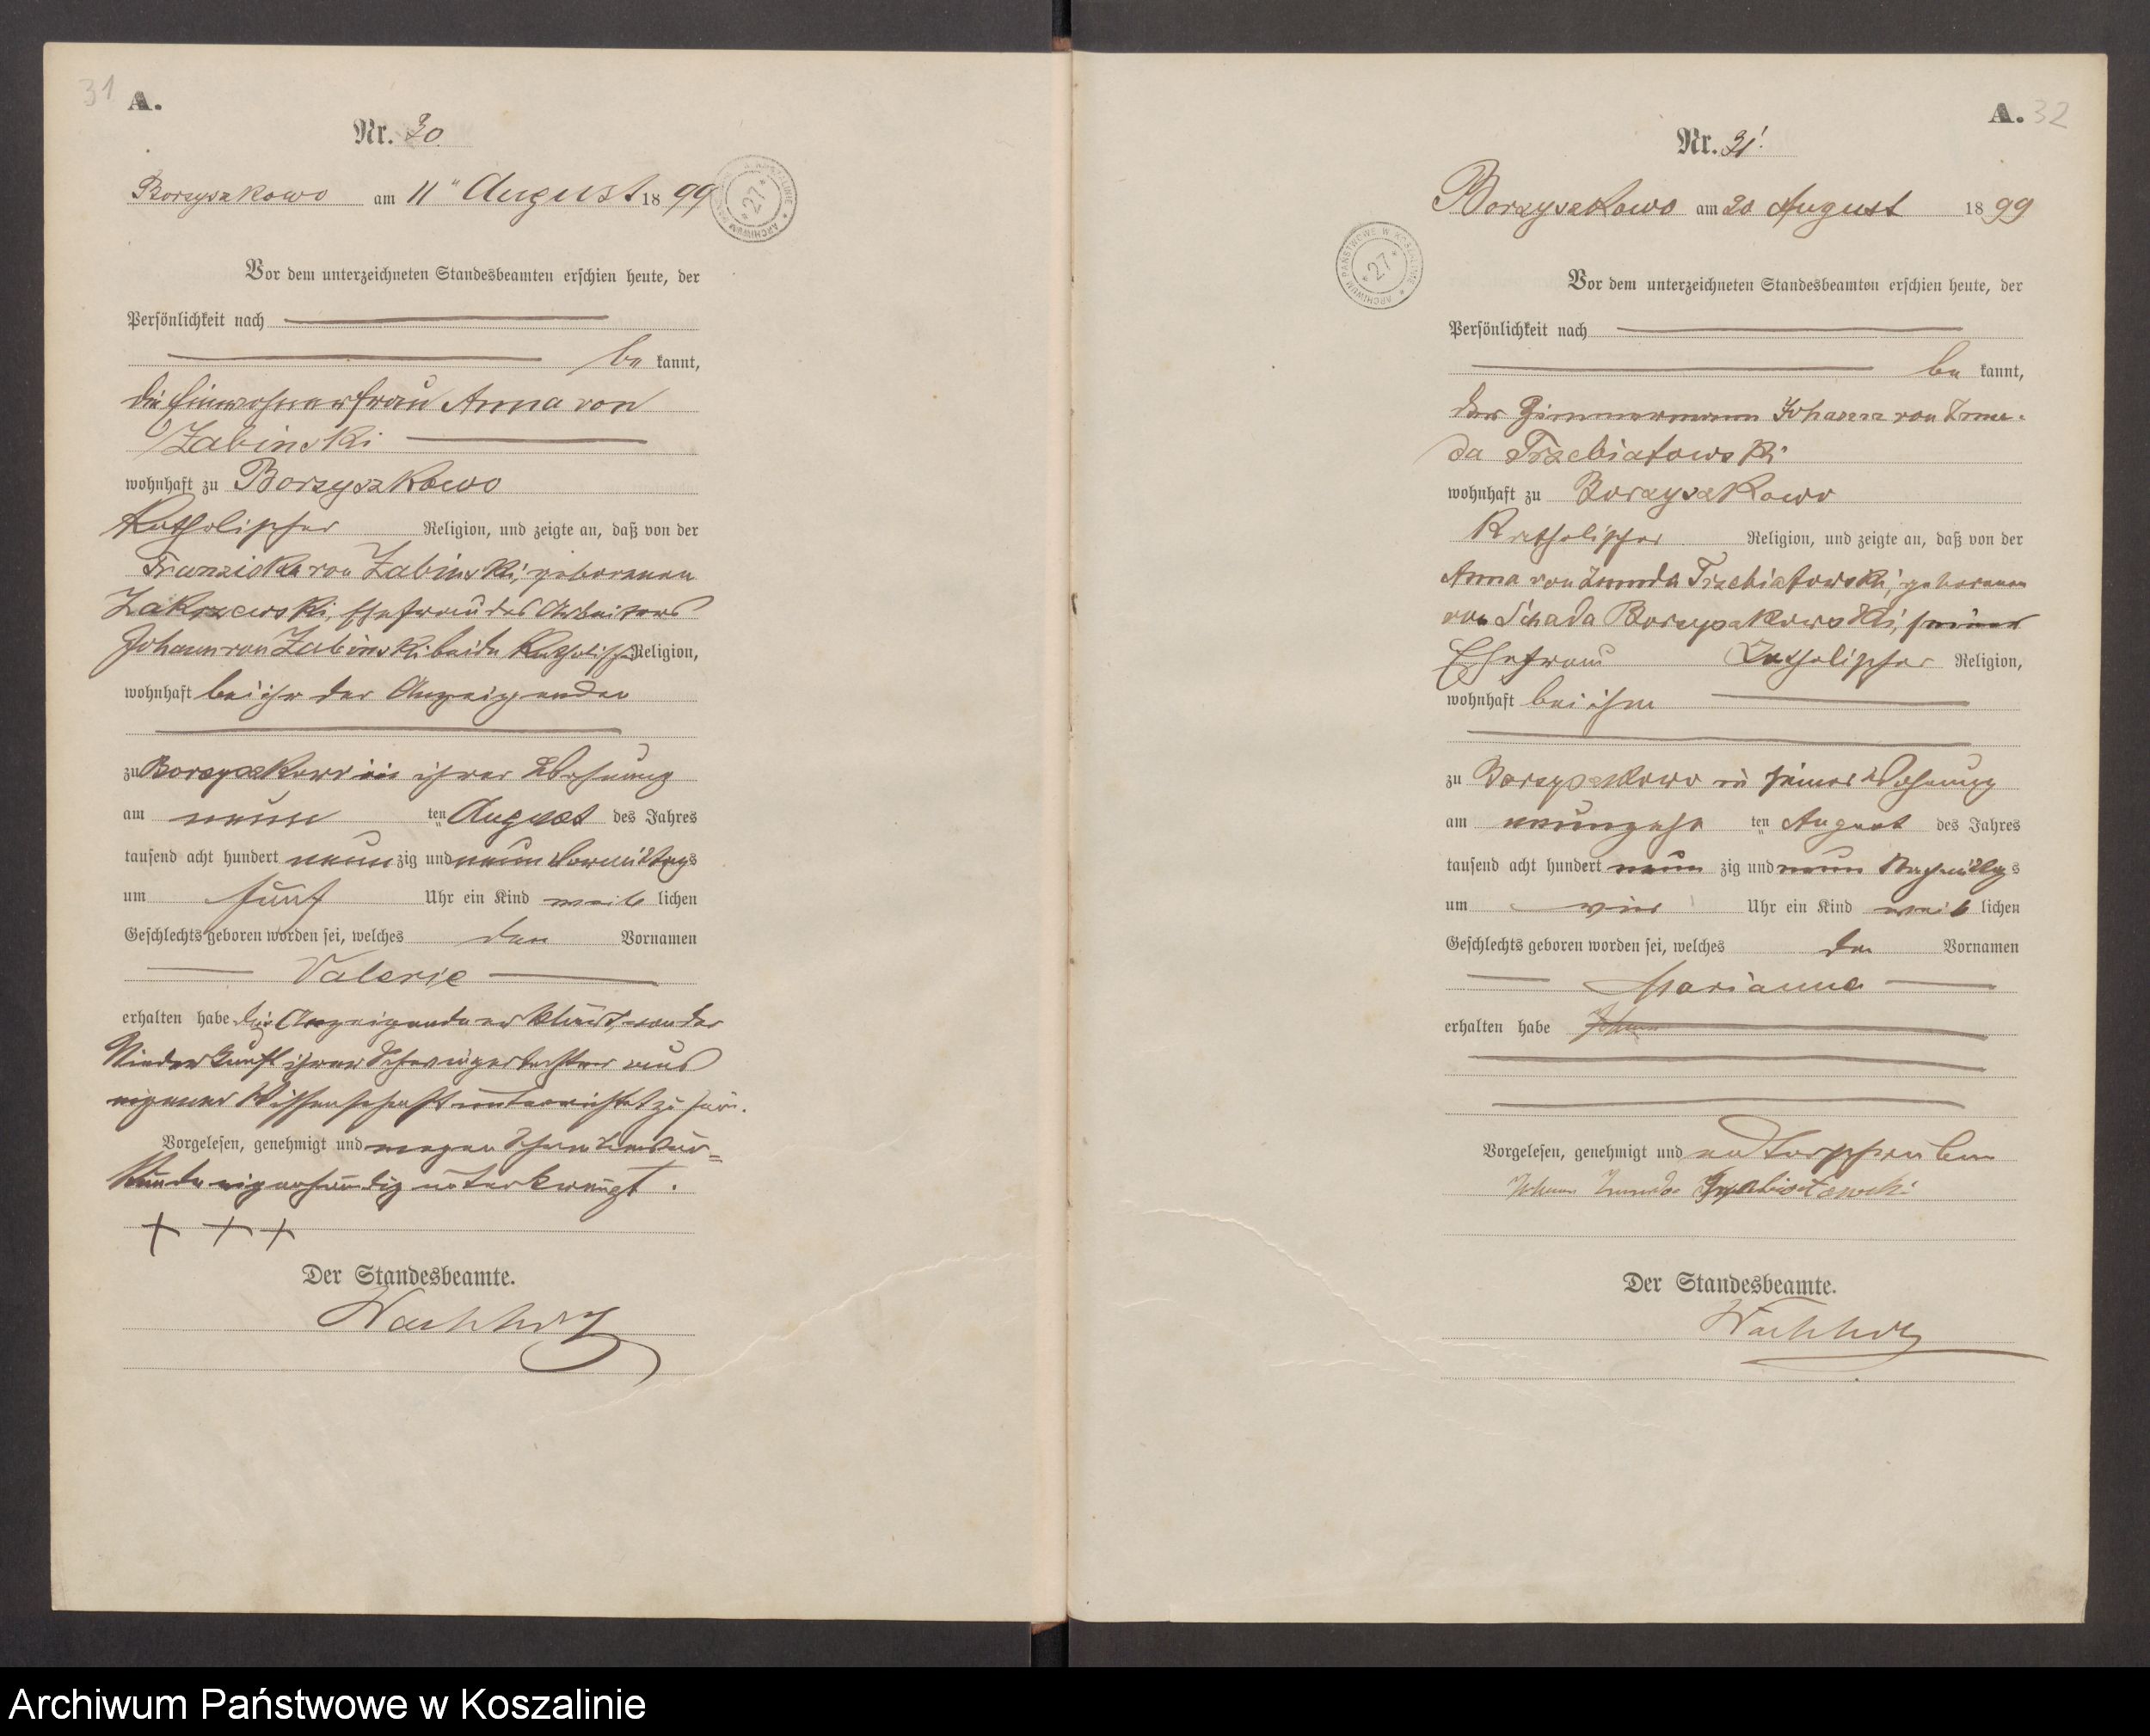 31
A.
Nr. 30.
Borzyszkowo am 11" August 1899
Vor dem unterzeichneten Standesbeamten erschien heute, der
Persönlichkeit nach
be kannt,
die Einwohnerfrau Anna von
Zabinski
wohnhaft zu Borzyszkowo
Katholischer Religion, und zeigte an, daß von der
Franziska von Zabinski, geborenen
Zakrzewski, Ehefrau des Arbeiters
Johann von Zabinski beide Katholisch Religion,
wohnhaft bei ihr der Anzeigenden
zu Borzyszkowo in ihrer Wohnung
am neun ten August des Jahres
tausend acht hundert neun zig und neun Vormittags
um fünf Uhr ein Kind weib lichen
Geschlechts geboren worden sei, welches den Vornamen
Valerie
erhalten habe die Anzeigende erklärt, von der
Niederkunft ihrer Schwiegertochter aus
eigener Wissenschaft unterrichtet zu sein.
Vorgelesen, genehmigt und wegen Schreibens un=
kunde eigenhändig unterkreuzt.
+ + +
Der Standesbeamte.
Wachholz
A. 32
Nr. 31.
Borzyszkowo am 20 August 1899
Vor dem unterzeichneten Standesbeamten erschien heute, der
Persönlichkeit nach
be kannt,
der Zimmermann Johann von Zmu-
da Trzebiatowski
wohnhaft zu Borzyszkowo
Katholischer Religion, und zeigte an, daß von der
Anna von Zmuda Trzebiatowski, geborenen
von Schada Borzyszkowski, seiner
Ehefrau Katholischer Religion,
wohnhaft bei ihm
zu Borzyszkowo in seiner Wohnung
am neunzehn ten August des Jahres
tausend acht hundert neun zig und neun Nachmittags
um vier Uhr ein Kind weib lichen
Geschlechts geboren worden sei, welches den Vornamen
Marianna
erhalten habe
Vorgelesen, genehmigt und unterschrieben
Johann Zmuda Trzebiatowski
Der Standesbeamte.
Wachholz
ARCHIWUM PAŃSTWOWE W KOSZALINIE
27
Archiwum Państwowe w Koszalinie